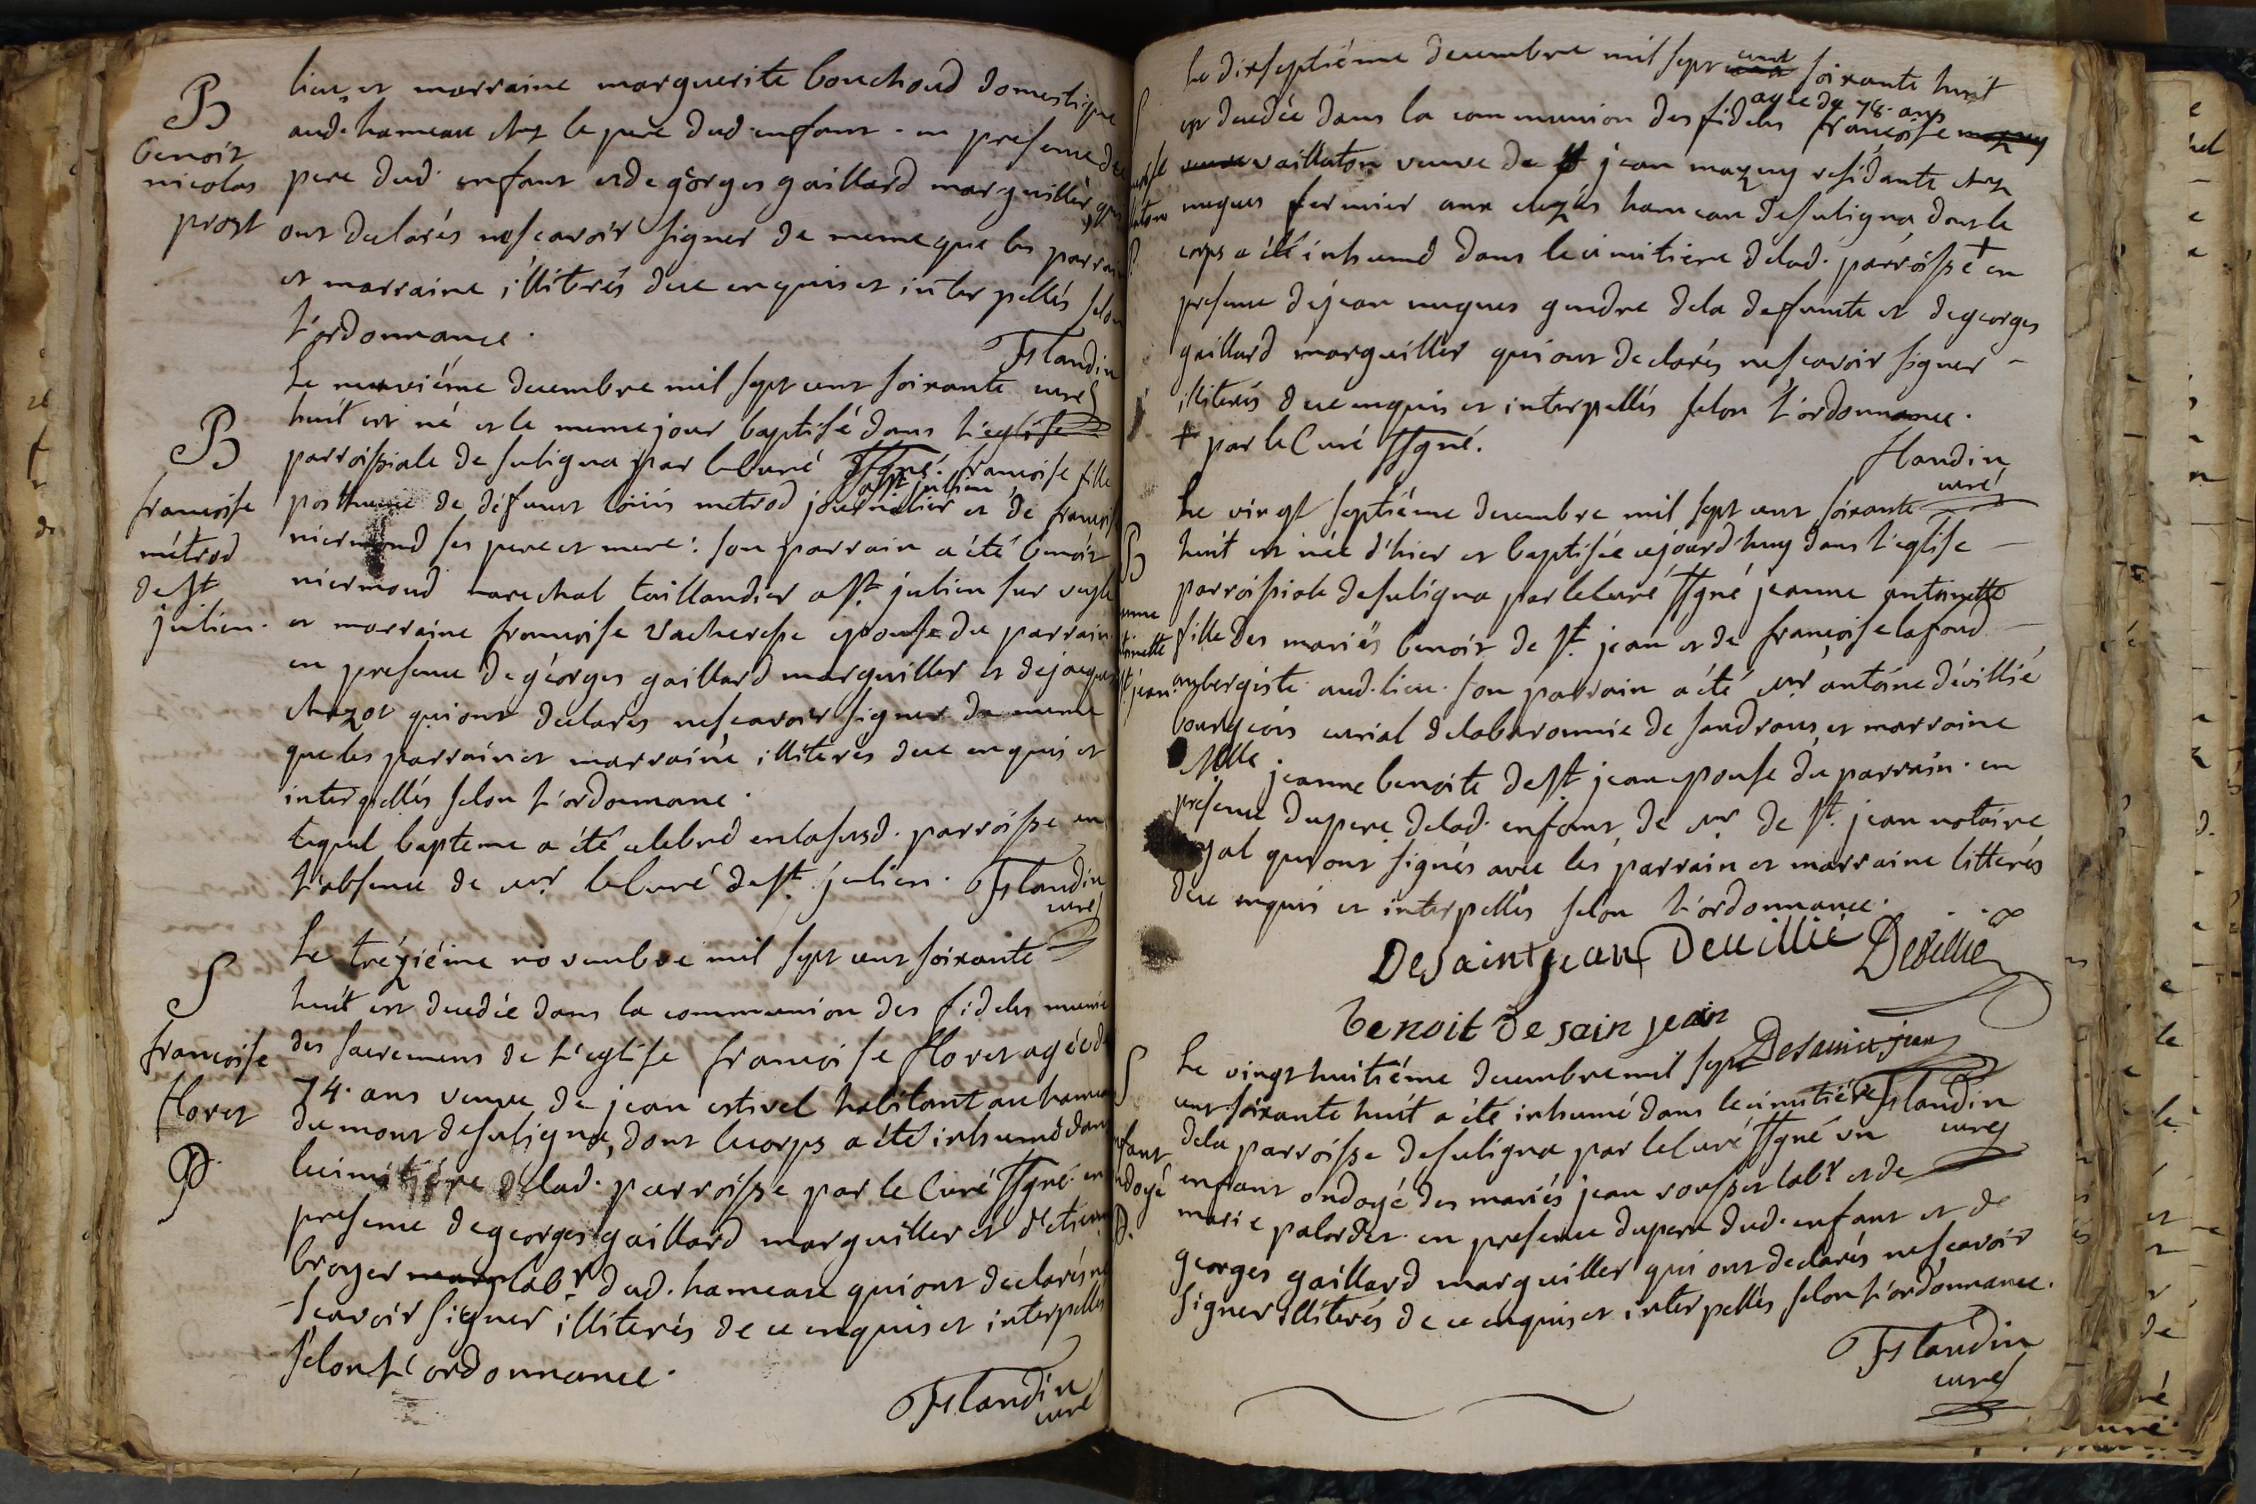 B
benoit
nicolas
prost
lieu, et marraine marguerite bouchoud domestique
aud. hameau chez le pere dud. enfant. en presence du
pere dud. enfant et de georges gaillard marguillier, qui
ont declarés ne scavoir signer de meme que les parrain
et marraine illiterés de ce enquis et interpellés selon
l'ordonnance.
Flandin
curé
B
francoise
métrod
de st
julien.
Le neuviéme decembre mil sept cent soixante
huit est né et le meme jour baptisé dans l'eglise
parroissiale de suligna par le curé ssgné. francoise fille
a st julien
posthume de défunt loüis metrod journalier et de francoise
niermond ses pere et mere: son parrain a été benoit
niermond marechal taillandier a st. julien sur veyle
et marraine francoise vacheresse epouse du parrain
en presence de géorges gaillard marguiller et de jaques
chazot qui ont declarés ne scavoir signer de meme
que les parrain et marraine illiterés de ce enquis et
interpellés selon l'ordonnance.
lequel bapteme a été celebré en la susd. parroisse en
l'absence de mr. le curé de st. julien. Flandin
curé
S
francoise
floret
P
Le treziéme novembre mil sept cent soixante
huit est decedée dans la communion des fideles munie
des sacremens de l'eglise francoise floret agée de
74. ans veuve de jean estivel habitant au hameau
du mont de suligna, dont le corps a été inhumé dans
le cimitiére de lad. parroisse par le curé ssgné. en
presence de georges gaillard marguiller et d'etienne
broyer labr. dud. hameau qui ont declarés ne
scavoir signer illiterés de ce enquis et interpellés
selon l'ordonnance.
Flandin
curé
Le dixseptiéme decembre mil sept cent soixante huit
agée de 78. ans
est decedée dans la communion des fideles francoise
vaillaton veuve de jean mazuy residante chez
nugues fermier aux clozés hameau de suligna, dont le
corps a été inhumé dans le cimitiere de lad. parroisse + en
presence de jean nugues gendre de la deffunte et de georges
gaillard marguiller qui ont declarés ne scavoir signer
illiterés de ce enquis et interpellés selon l'ordonnance.
+ par le Curé ssgné.
flandin
curé
Le vingt septiéme decembre mil sept cent soixante
huit est née d'hier et baptisée ajourd'huy dans l'eglise
parroissiale de suligna par le curé ssgné jeanne antoinette
fille des mariés benoit de st. jean et de francoise lafond
aubergiste aud. lieu. son parrain a été mr. antoine dévillié
bourgeois curial de la baronnie de sandrans, et marraine
Mlle jeanne benoite de st jean epouse du parrain. en
presence du pere de lad. enfant, de mr. de st. jean notaire
royal qui ont signés avec les parrain et marraine litterés
de ce enquis et interpellés selon l'ordonnance.
De saint jean Deuillié Deuillie
benoit de sain jean
Desaintjean
Flandin
curé
Le vingt huitiéme decembre mil sept
cent soixante huit a été inhumé dans le cimitiére
de la parroisse de suligna par le curé ssgné un
enfant ondoyé des mariés jean rousset labr. et de
marie palordet en presence du pere dud. enfant et de
georges gaillard marguiller qui ont declarés ne scavoir
signer illiterés de ce enquis et interpellés selon l'ordonnance.
Flandin
curé